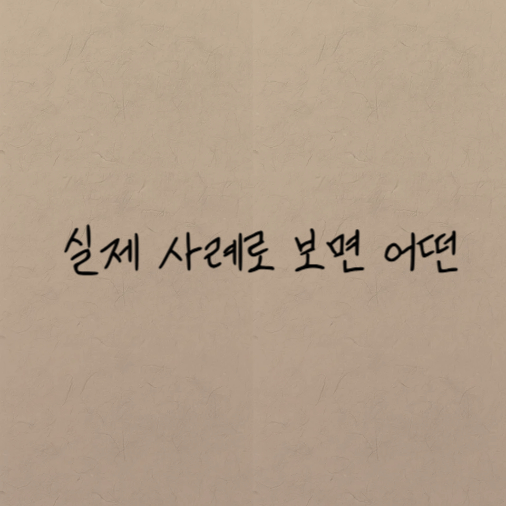 실제 사례로 보면 어떤